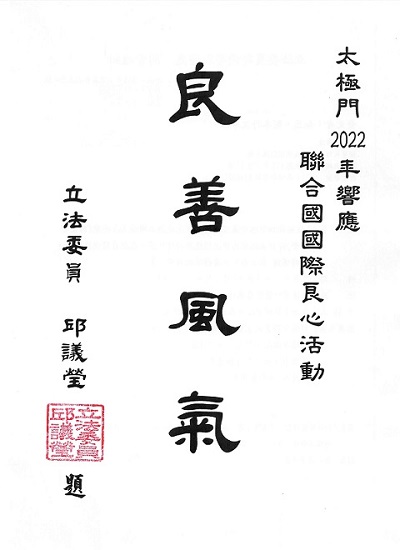 太極門2022年響應
聯合國國際良心活動
良善風氣
立法委員 邱議瑩 題
立法委員
邱議瑩